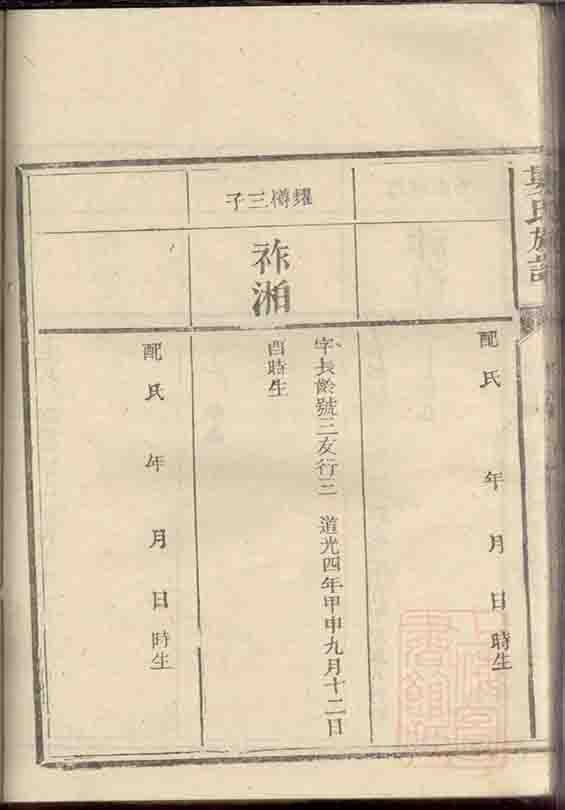 氏族譜
配氏 年 月 日時生
耀樽三子
祚湘
字長齡號三友行三 道光四年甲申九月十二日
酉時生
配氏 年 月 日時生